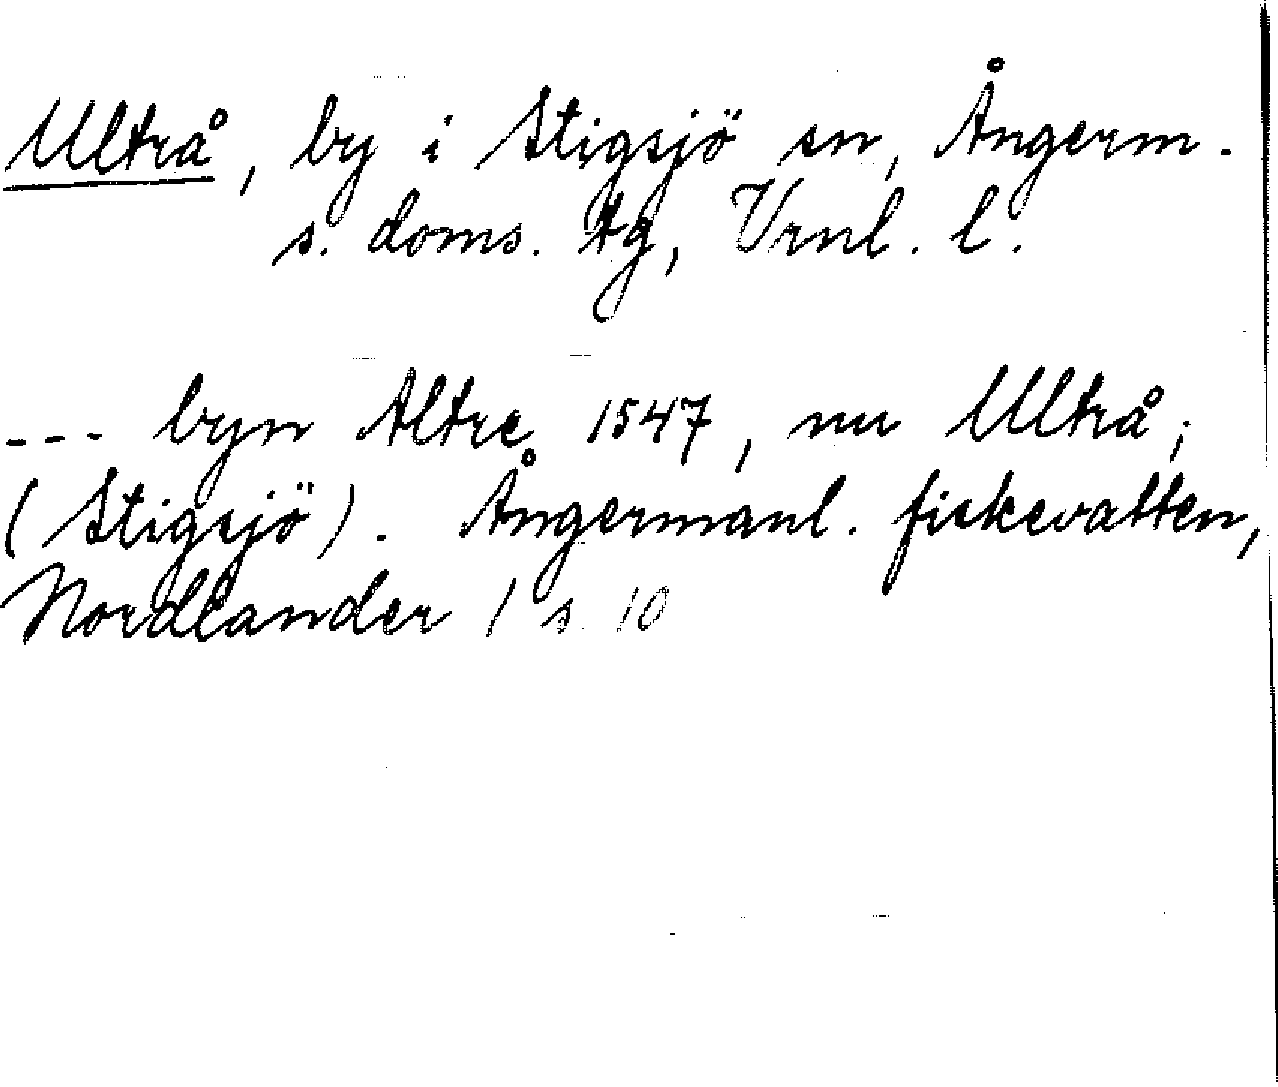 Ultrå, by i Stigsjö sn, Ångerm.
s. doms. tg, Vrnl. l.
--- byn Altre 1547, nu Ultrå,
(Stigsjö). Ångermanl. fiskevatten,
Nordlander / s. 10